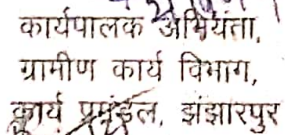 कार्यपालक अभियंता,
ग्रामीण कार्य विभाग,
कार्य प्रमंडल, झंझारपुर